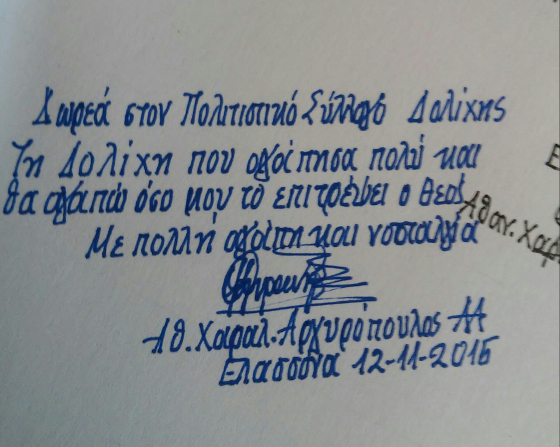 Δωρεά στον Πολιτιστικό Σύλλογο Δολίχης
Τη Δολίχη που αγάπησα πολύ και
θα αγαπώ όσο μου το επιτρέψει ο Θεός
Με πολλή αγάπη και νοσταλγία
Αθ. Χαραλ. Αργυρόπουλος
Ελασσόνα 12-11-2015
Αθαν. Χαρ